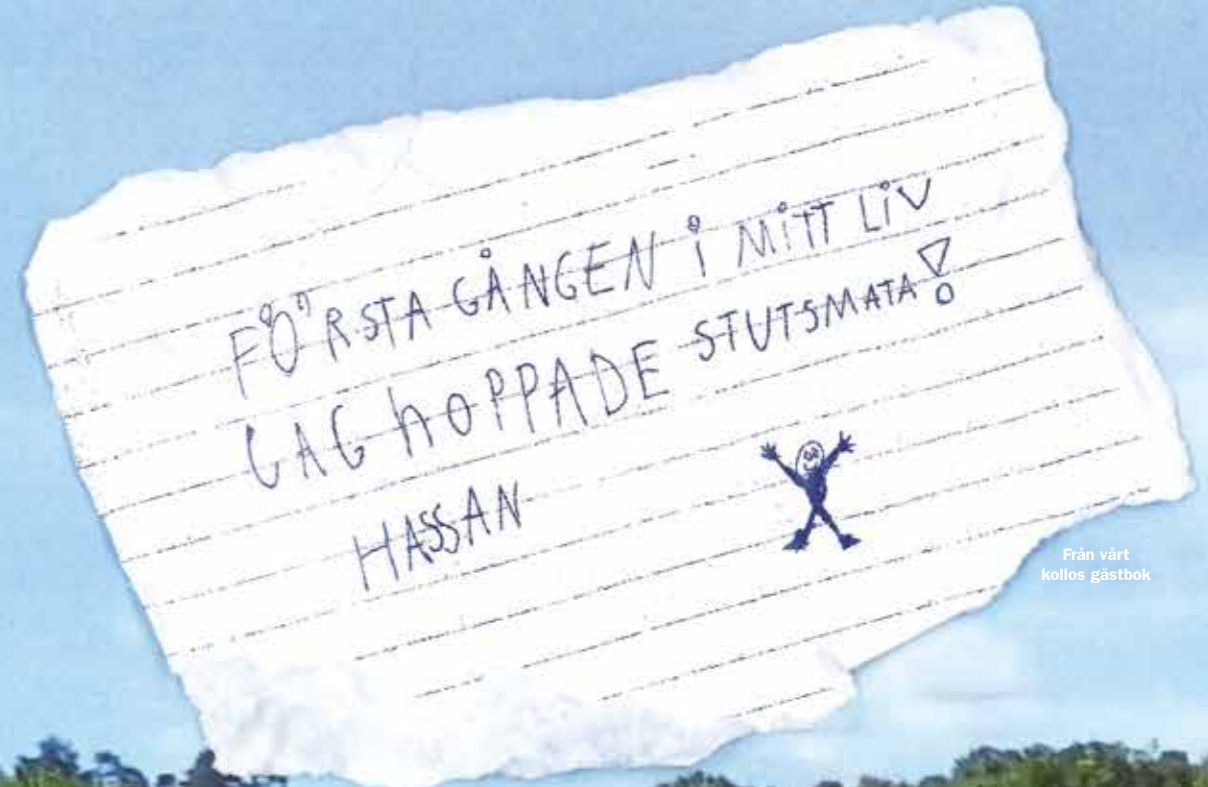 FÖRSTA GÅNGEN i MiTT LiV
JAG hOPPADE STUTSMATA!
HASSAN
Från vårt
kollos gästbok